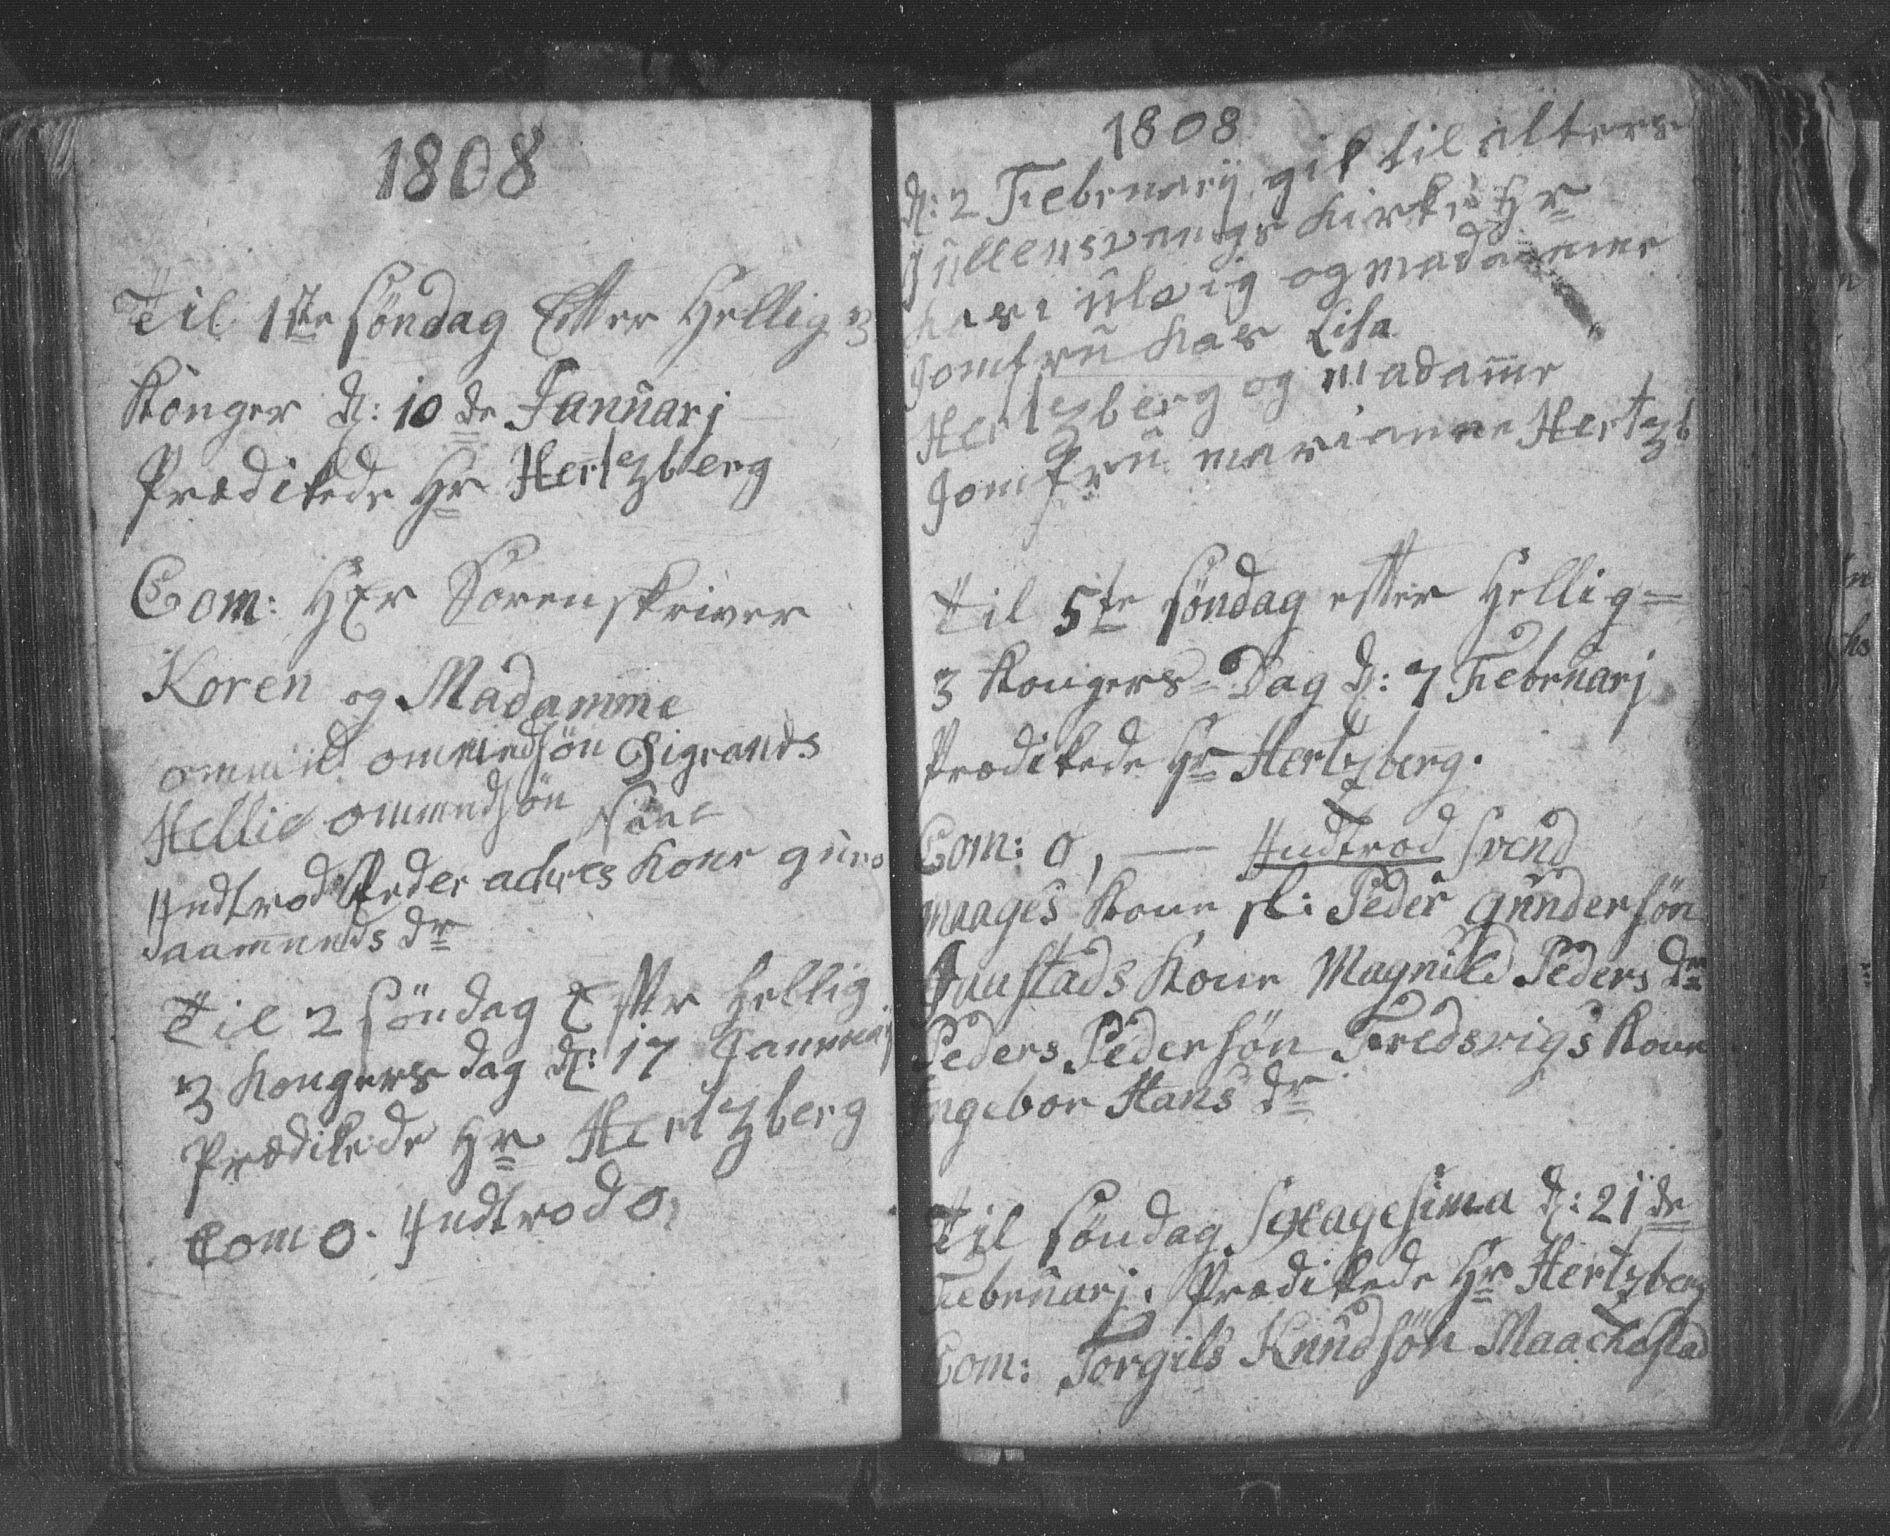 1808
Til 1ste Søndag Efter Hellig 3
Konger d: 10 de Januarj
Prædikede Hr Hertzberg
Com: Hr Sorenskriver
Koren og Madamme
ommund ommundsøn Sigrands
Hellie ommundsøn
Indtrod Peder aches Kone guro
aamunds dr
Til 2 Søndag Efter Hellig
3 Kongers dag d: 17 Januarj
Prædikede Hr Hertzberg
Com 0. Indtrod 0,
1808
d: 2 Februarij gik til alters
i ullensvangs Kirke Hr
ulvig og madamme
Jomfru Lisa
Hertzberg og madamme
Jomfru marianne Hertzb
Til 5te Søndag efter Hellig=
3 Kongers=Dag d: 7 Februarj
Prædikede Hr Hertzberg.
Com: 0, — Indtrod Svend
maages Kone sl: Peder gundersøn
Kone Magnild Peders dr
Peders Pedersøn Fredsvigs Kone
ingebor Hans dr
Til Søndag Sexagesima d: 21 de
Februarj. Prædikede Hr Hertzberg
Com: Torgils Knudsøn Maachestad